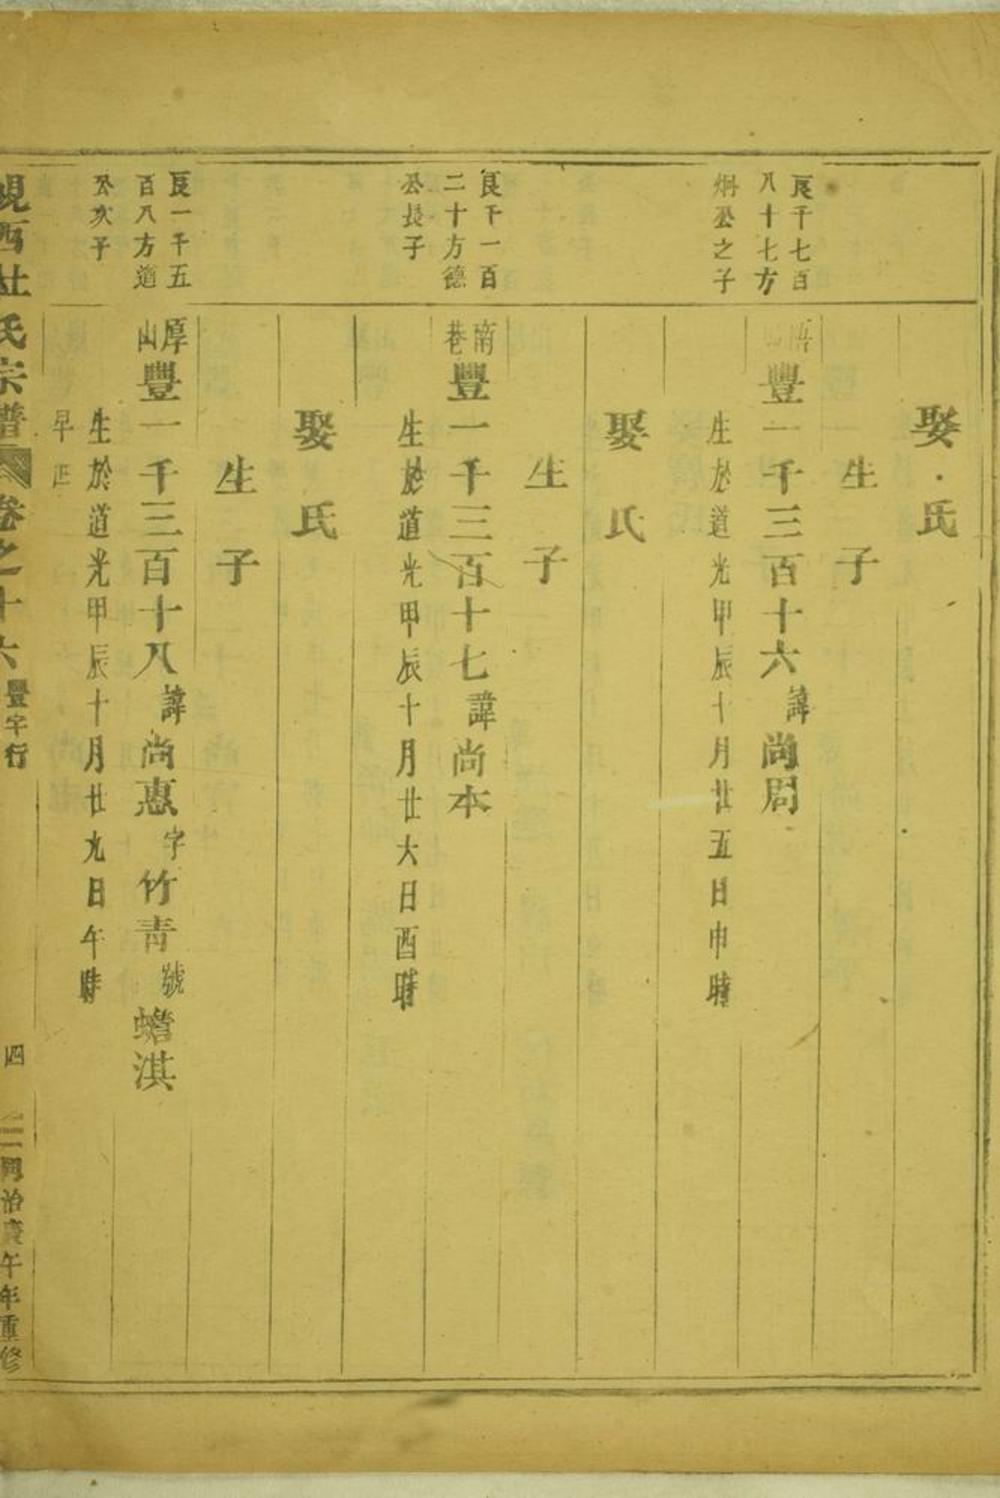 娶氏
生子
良千七百
八十七方
炯公之子
豐一千三百十六諱尚周
生於道光甲辰十月廿五日申時
娶氏
生子
良千一百
二十方德
公長子
南巷豐一千三百十七諱尚本
生於道光甲辰十月廿六日酉時
娶氏
生子
良一千五
百八方適
公次子
厚山豐一千三百十八諱尚惠字竹青號蟾淇
生於道光甲辰十月廿九日午時
早
峴西杜氏宗譜 卷之十六 豐字行 四 同治庚午年重修